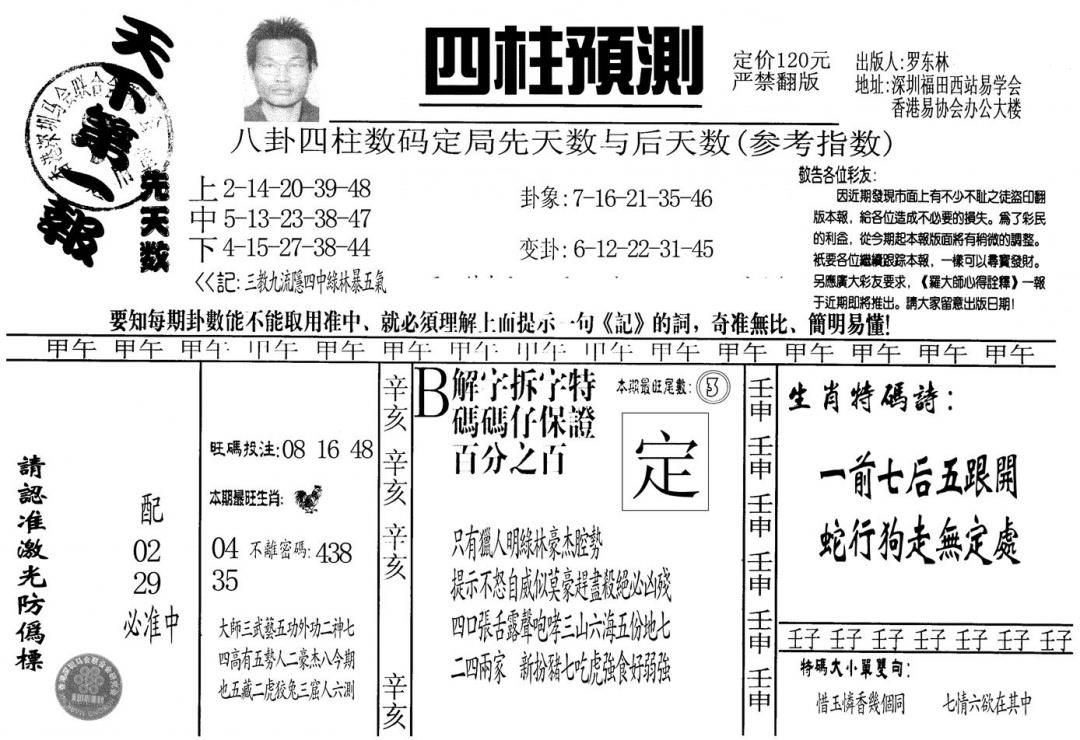 天下第一報
四柱預測
定价120元
严禁翻版
出版人:罗东林
地址:深圳福田西站易学会
香港易协会办公大楼
八卦四柱数码定局先天数与后天数(参考指数)
先天数
上 2-14-20-39-48
中 5-13-23-38-47
下 4-15-27-38-44
卦象:7-16-21-35-46
变卦:6-12-22-31-45
<<記:三教九流隱四中綠林暴五氣
敬告各位彩友:
因近期發現市面上有不少不耻之徒盜印翻
版本報，給各位造成不必要的損失。為了彩民
的利益，從今期起本報版面將有稍微的調整。
衹要各位繼續跟踪本報，一樣可以尋寶發財。
另應廣大彩友要求，《羅大師心得詮釋》一報
于近期即將推出。請大家留意出版日期!
要知每期卦數能不能取用准中、就必須理解上面提示一句《記》的詞，奇准無比、簡明易懂!
甲午 甲午 甲午 甲午 甲午 甲午 甲午 甲午 甲午 甲午 甲午 甲午 甲午 甲午 甲午
請認准激光防僞標
配
02
29
必准中
旺碼投注:08 16 48
本期最旺生肖:
04 不離密碼:438
35
大師三武藝五功外功二神七
四高有五勢人二豪杰八今期
也五藏二虎狡兔三窟人六測
辛亥
辛亥
辛亥
辛亥
B解字拆字特
碼碼仔保證
百分之百
本期最旺尾數:3
定
只有獵人明綠林豪杰腔勢
提示不怒自威似莫豪趕盡殺絕必凶殘
四口張舌露聲咆哮三山六海五份地七
二四兩家 新扮豬七吃虎強食好弱強
壬申
壬申
壬申
壬申
壬申
壬申
生肖特碼詩:
一前七后五跟開
蛇行狗走無定處
壬子 壬子 壬子 壬子 壬子 壬子 壬子
特碼大小單雙句:
惜玉憐香幾個同 七情六欲在其中